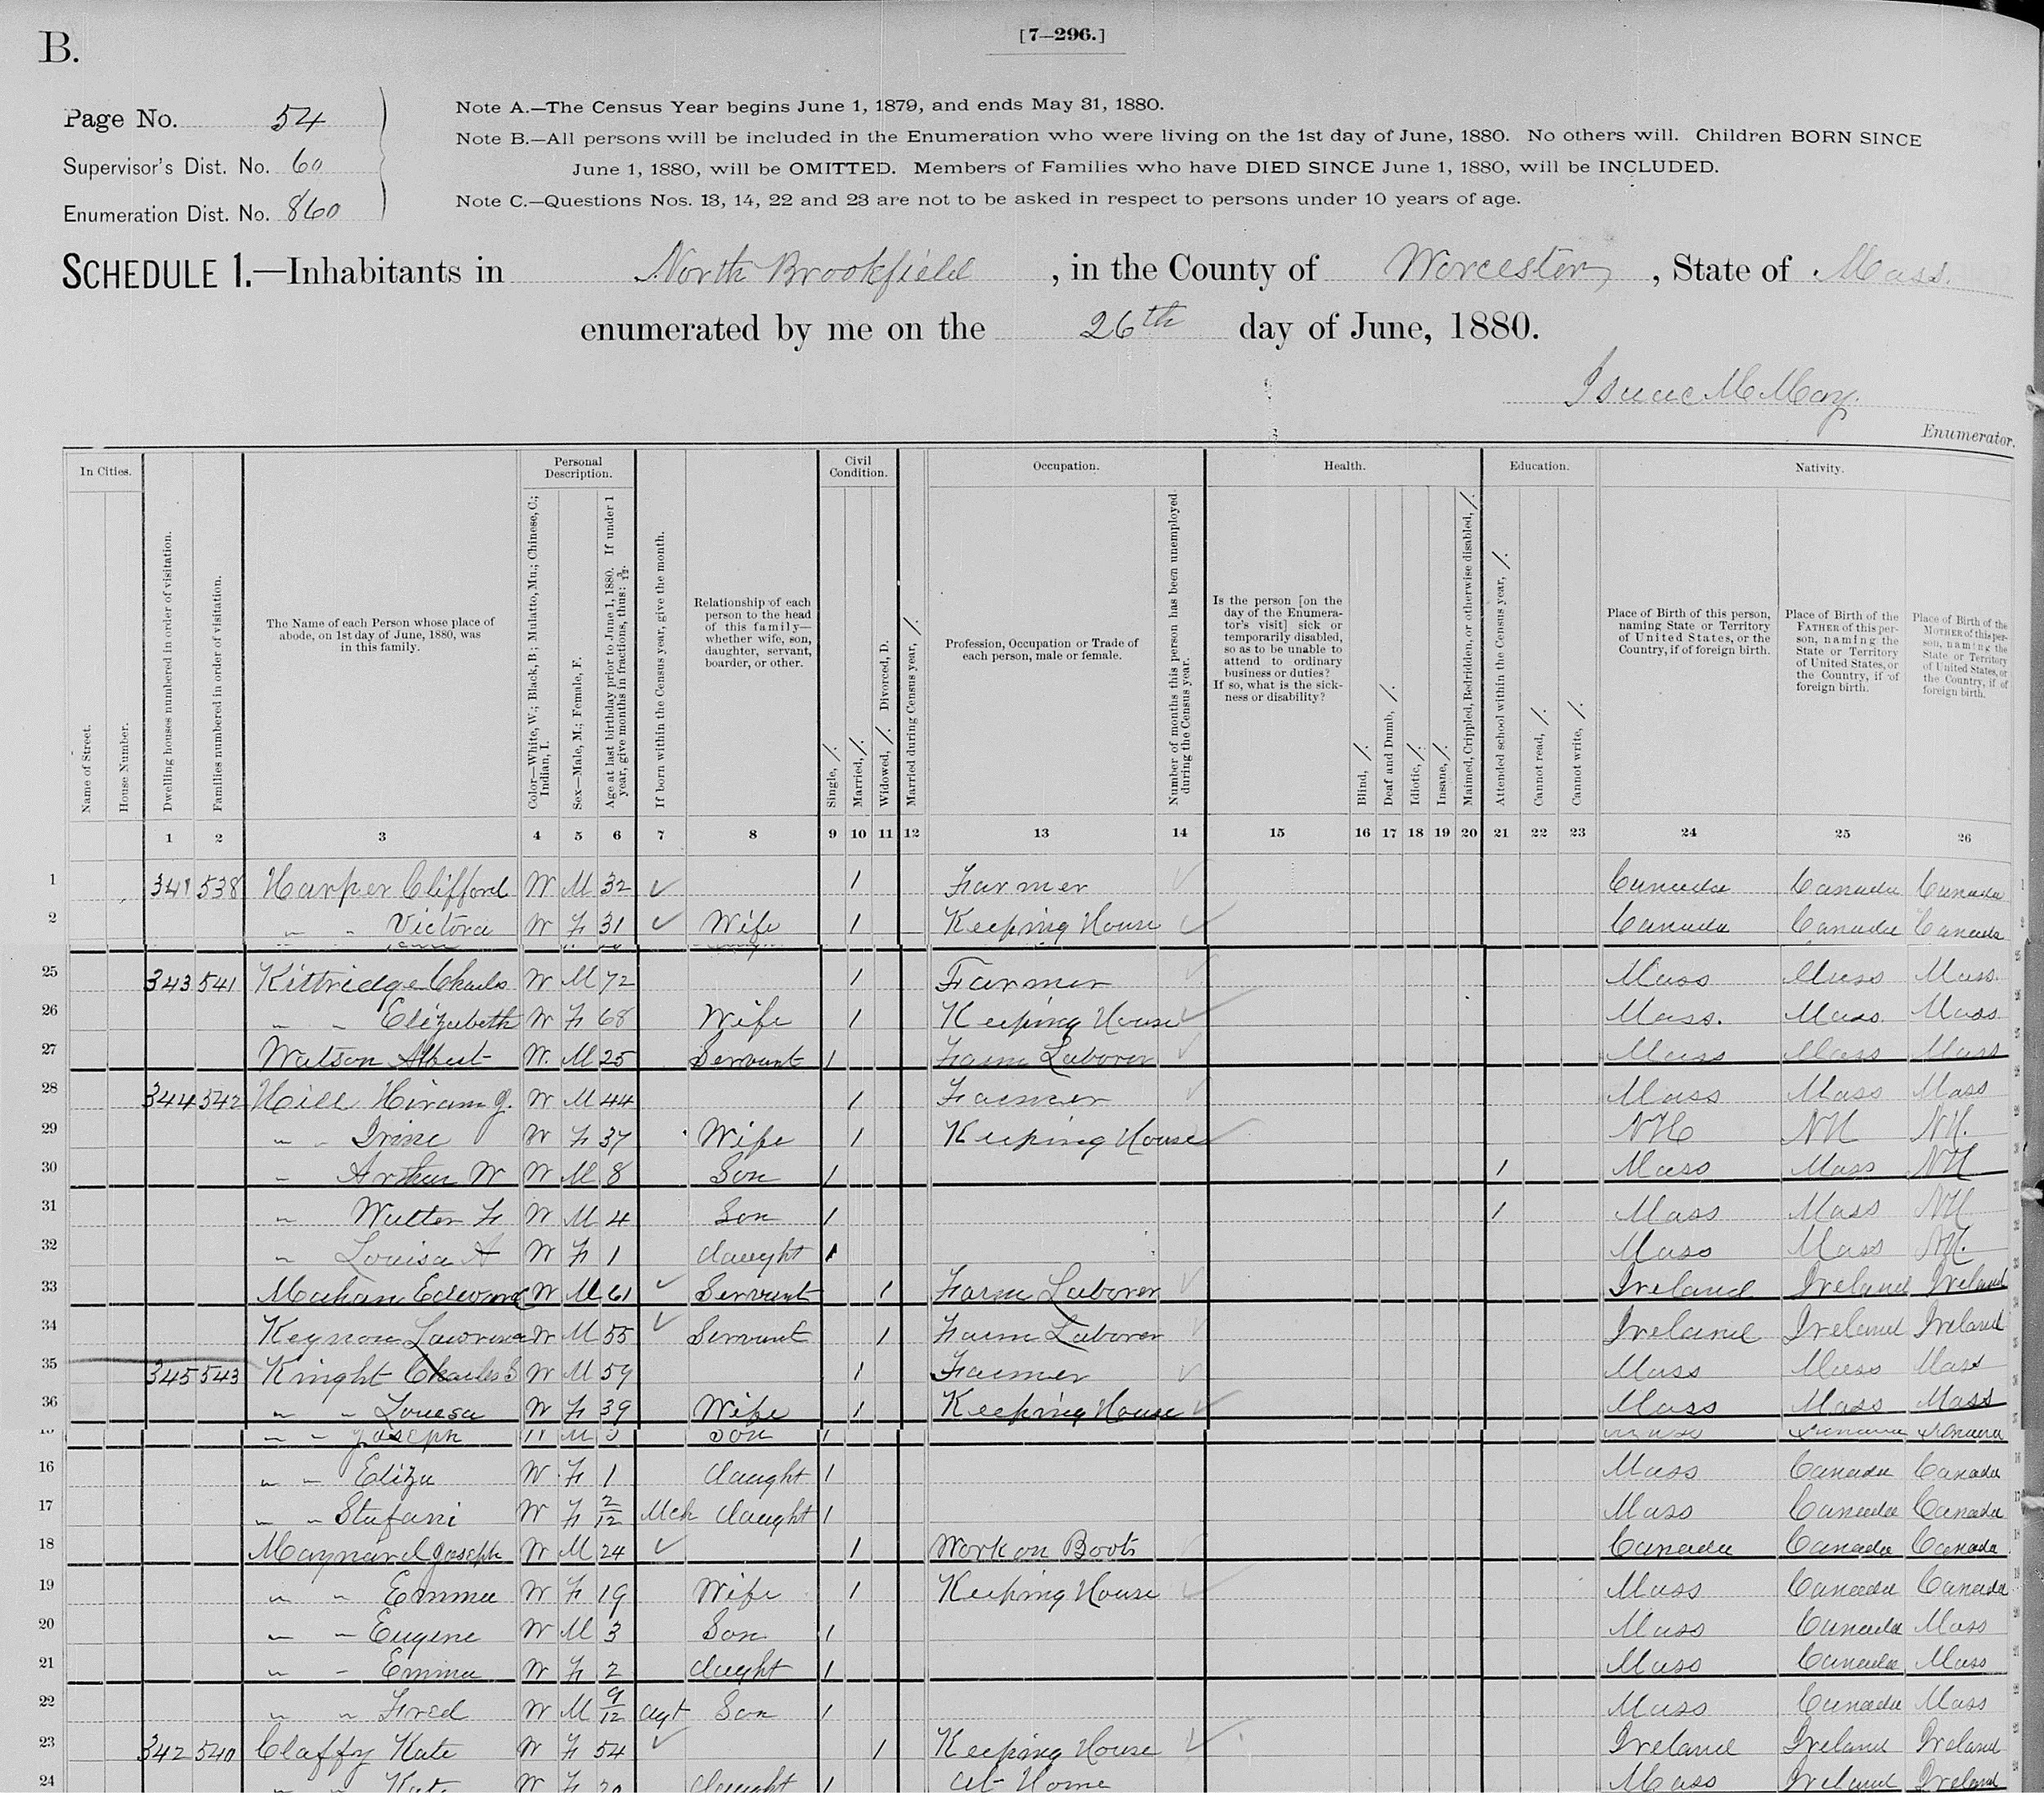 B.
[7–296.]
Page No. 54
Supervisor's Dist. No. 60
Enumeration Dist. No. 860
Note A.—The Census Year begins June 1, 1879, and ends May 31, 1880.
Note B.—All persons will be included in the Enumeration who were living on the 1st day of June, 1880. No others will. Children BORN SINCE
June 1, 1880, will be OMITTED. Members of Families who have DIED SINCE June 1, 1880, will be INCLUDED.
Note C.—Questions Nos. 13, 14, 22 and 23 are not to be asked in respect to persons under 10 years of age.
SCHEDULE 1.—Inhabitants in North Brookfield, in the County of Worcester, State of Mass.
enumerated by me on the 26th day of June, 1880.
Isaac M May.
Enumerator.
In Cities.
Name of Street.
House Number.
Dwelling houses numbered in order of visitation.
Families numbered in order of visitation.
The Name of each Person whose place of abode, on 1st day of June, 1880, was in this family.
Personal Description.
Color—White, W.; Black, B.; Mulatto, Mu.; Chinese, C.; Indian, I.
Sex—Male, M.; Female, F.
Age at last birthday prior to June 1, 1880. If under 1 year, give months in fractions, thus: 3/12.
If born within the Census year, give the month.
Relationship of each person to the head of this family—whether wife, son, daughter, servant, boarder, or other.
Civil Condition.
Single, /.
Married, /.
Widowed, /. Divorced, D.
Married during Census year, /.
Occupation.
Profession, Occupation or Trade of each person, male or female.
Number of months this person has been unemployed during the Census year.
Health.
Is the person [on the day of the Enumerator's visit] sick or temporarily disabled, so as to be unable to attend to ordinary business or duties? If so, what is the sickness or disability?
Blind, /.
Deaf and Dumb, /.
Idiotic, /.
Insane, /.
Maimed, Crippled, Bedridden, or otherwise disabled, /.
Education.
Attended school within the Census year, /.
Cannot read, /.
Cannot write, /.
Nativity.
Place of Birth of this person, naming State or Territory of United States, or the Country, if of foreign birth.
Place of Birth of the FATHER of this person, naming the State or Territory of United States, or the Country, if of foreign birth.
Place of Birth of the MOTHER of this person, naming the State or Territory of United States, or the Country, if of foreign birth.
1 2 3 4 5 6 7 8 9 10 11 12 13 14 15 16 17 18 19 20 21 22 23 24 25 26
1 341 538 Harper Clifford W M 32 ✓ / Farmer ✓ Canada Canada Canada
2 " " Victora W F 31 ✓ Wife / Keeping House ✓ Canada Canada Canada
25 343 541 Kittridge Charles W M 72 / Farmer ✓ Mass Mass Mass.
26 " " Elizabeth W F 68 Wife / Keeping House ✓ Mass. Mass. Mass
27 Watson Albert W. M 25 Servant / Farm Laborer ✓ Mass Mass Mass
28 344 542 Hill Hiram J. W M 44 / Farmer ✓ Mass Mass Mass
29 " " Irine W F 37 Wife / Keeping House ✓ NH NH NH.
30 " Arthur W W M 8 Son / / Mass Mass NH
31 " Walter F W M 4 Son / / Mass Mass NH
32 " Louisa A W F 1 daught / Mass Mass NH.
33 Mahan Edward W M 61 ✓ Servant / Farm Laborer ✓ Ireland Ireland Ireland
34 Keynon Lawrence W M 55 ✓ Servant / Farm Laborer ✓ Ireland Ireland Ireland
35 345 543 Knight Charles S W M 59 / Farmer ✓ Mass Mass Mass
36 " " Louesa W F 39 Wife / Keeping House ✓ Mass Mass Mass
" " Joseph W M Son /
16 " " Eliza W F 1 daught / Mass Canada Canada
17 " " Stafani W F 2/12 Mch daught / Mass Canada Canada
18 Maynard Joseph W M 24 ✓ / Work on Boots ✓ Canada Canada Canada
19 " " Emma W F 19 Wife / Keeping House ✓ Mass Canada Canada
20 " " Eugene W M 3 Son / Mass Canada Mass
21 " " Emma W F 2 daught / Mass Canada Mass
22 " " Fred W M 9/12 Agt Son / Mass Canada Mass
23 342 540 Claffy Kate W F 54 ✓ / Keeping House ✓ Ireland Ireland Ireland
24 " " Kate W F daught / At Home Mass Ireland Ireland